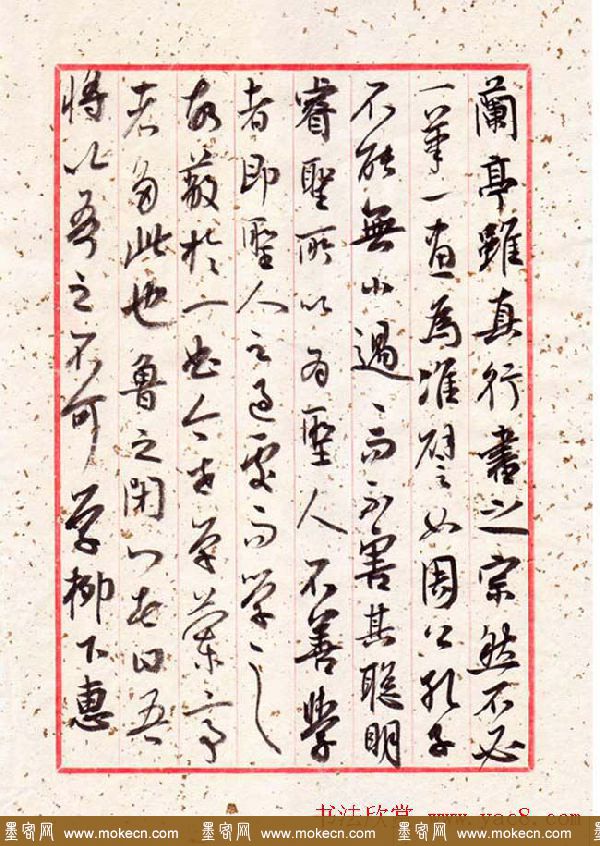 蘭亭雖真行書之宗然不必
一筆一畫為準譬如周公孔子
不能無小過過而不害其聰明
睿聖所以為聖人不善學
者即聖人之過處而學之
故蔽於一曲今世學蘭亭
者多此也魯之閉門者曰吾
將以吾之不可學柳下惠
书法欣赏 www.yac8.com
墨客网 www.mokecn.com 墨客网 www.mokecn.com 墨客网 www.mokecn.com